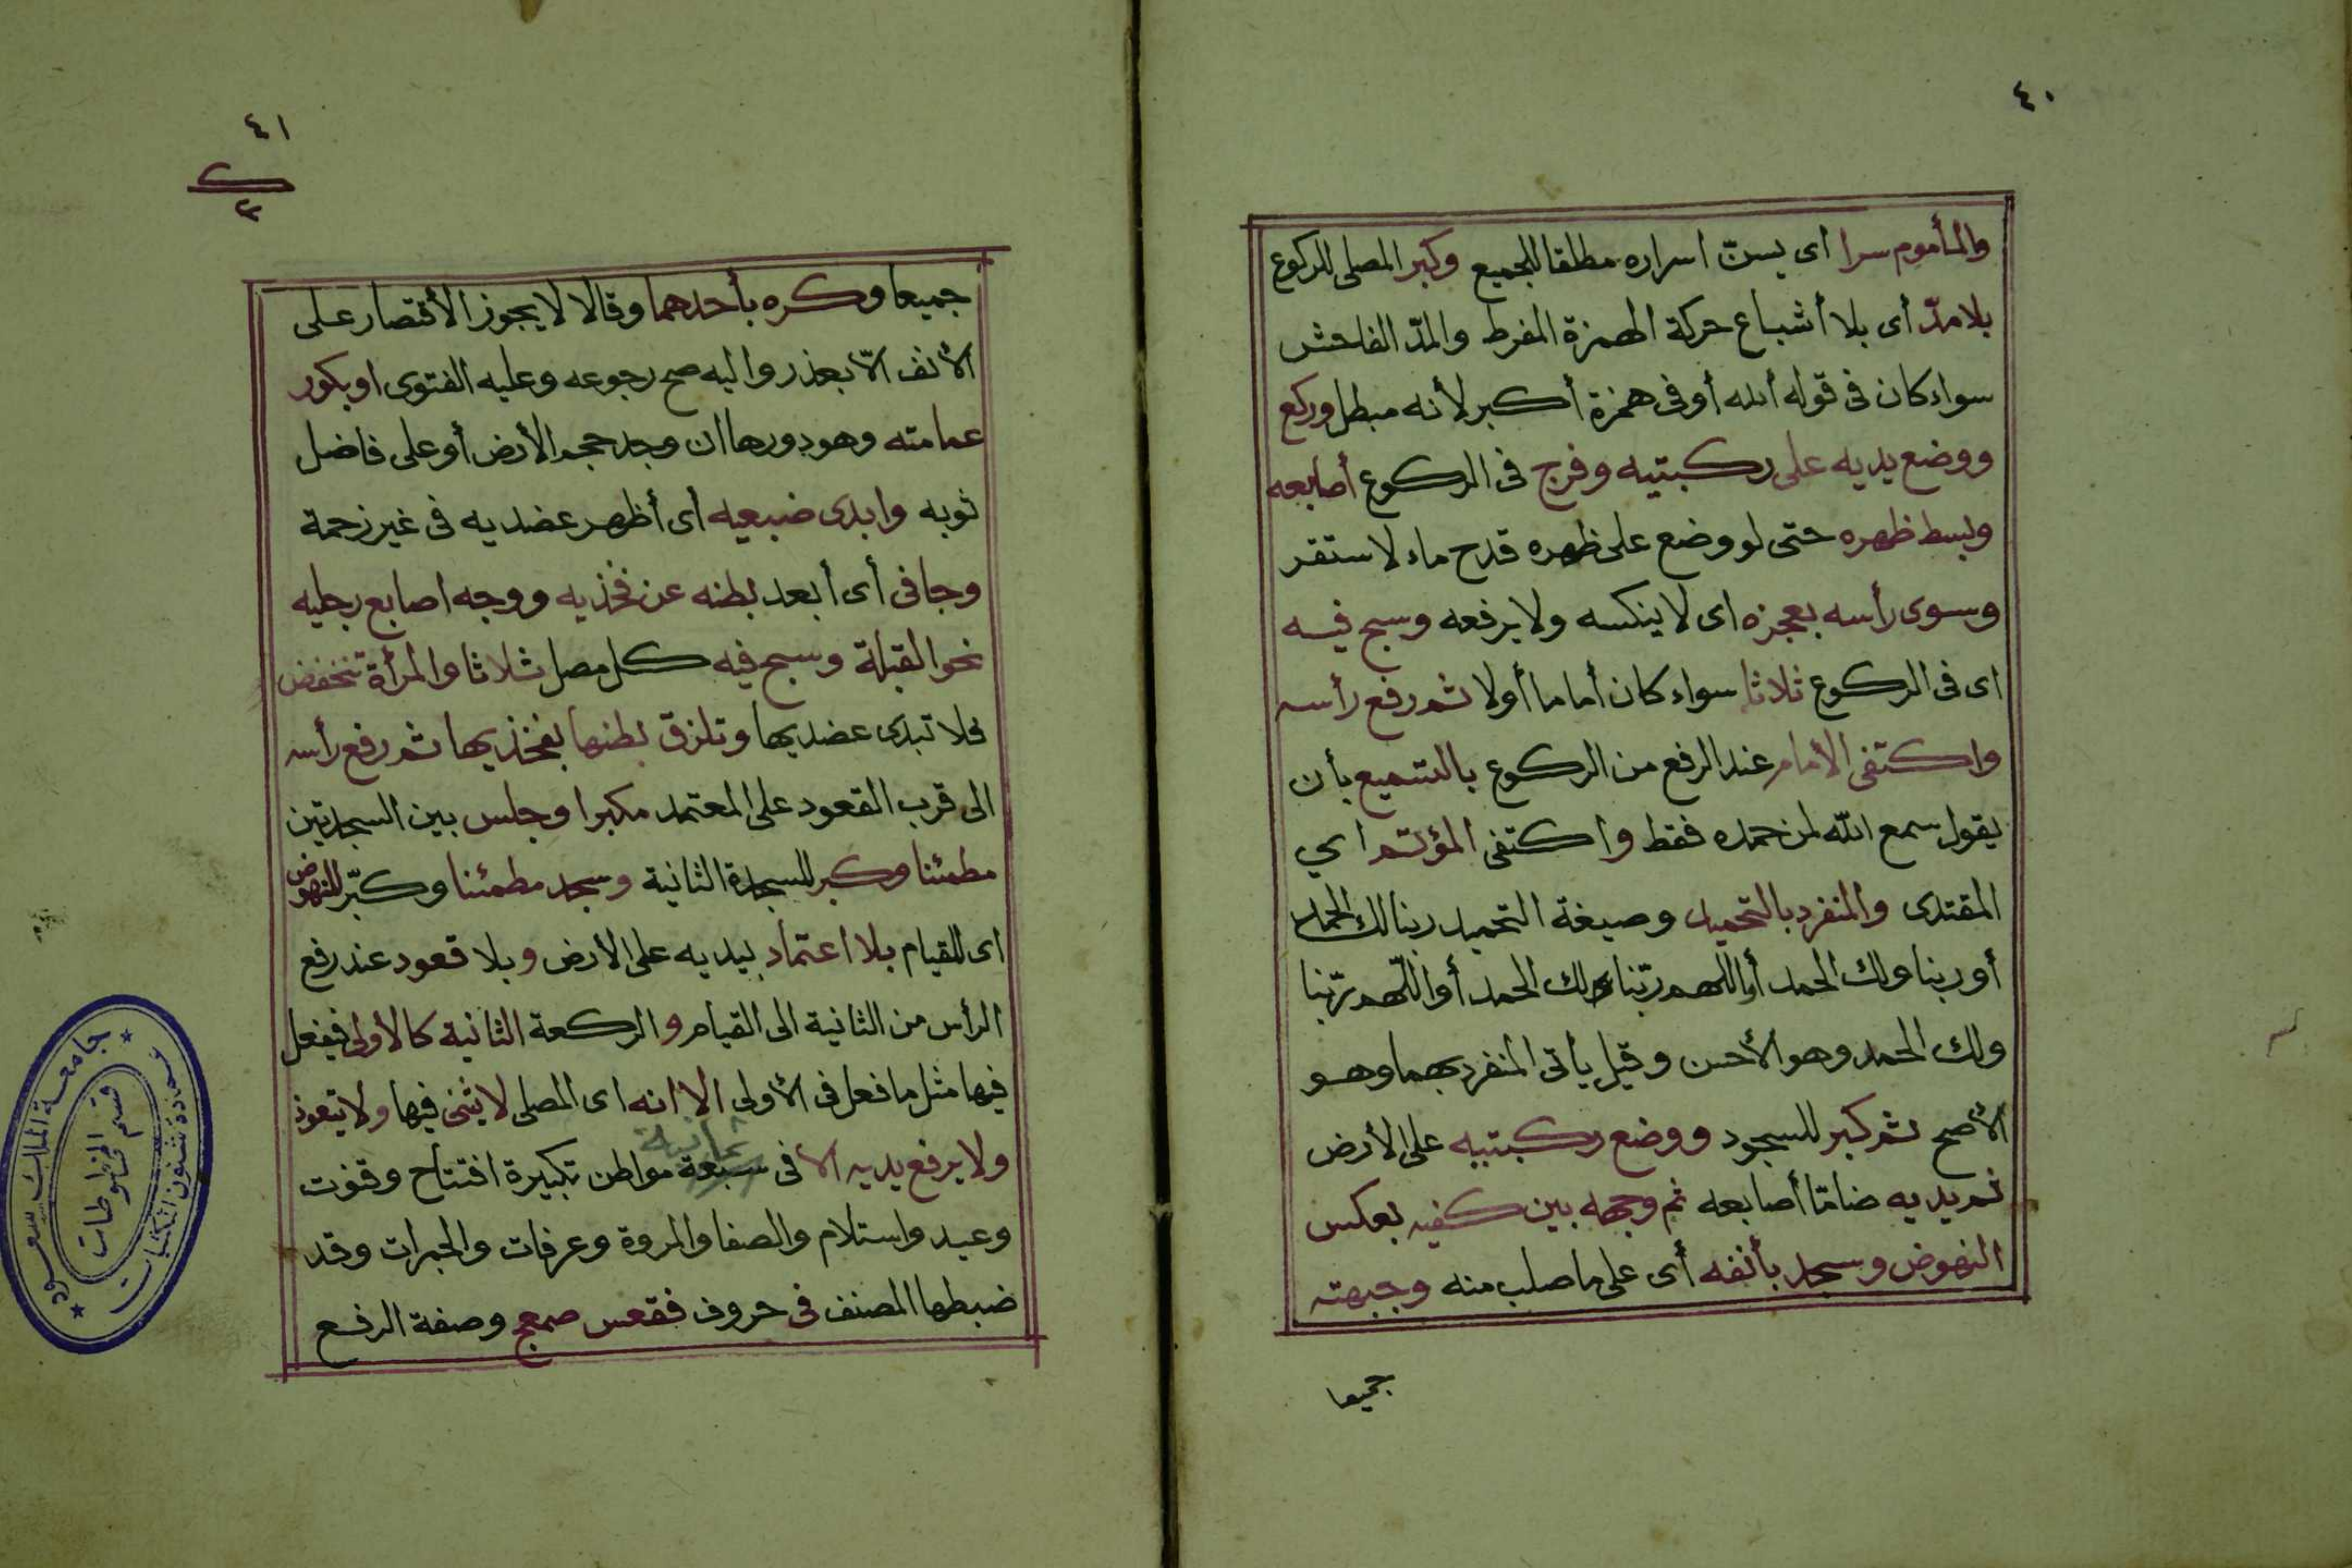 ٤٠
والمأموم سرا اى يسن اسراره مطلقا للجميع وكبر المصلى للركوع
بلا مدّ أى بلا أشباع حركة الهمزة المفرط والمدّ الفاحش
سواء كان فى قوله ألله أو فى همزة أكبر لأنه مبطل وركع
ووضع يديه على ركبتيه وفرج فى الركوع أصابعه
وبسط ظهره حتى لو وضع على ظهره قدح ماء لاستقر
وسوى رأسه بعجزه اى لا ينكسه ولا يرفعه وسبح فيه
اى فى الركوع ثلاثا سواء كان أماما أولا ثم رفع رأسه
واكتفى الأمام عند الرفع من الركوع بالتسميع بأن
يقول سمع الله لمن حمده فقط واكتفى المؤتم اي
المقتدى والمنفرد بالتحميد وصيغة التحميد ربنا لك الحمد
أو ربنا ولك الحمد أو اللهم ربّنا لك الحمد أو اللّهم ربّنا
ولك الحمد وهو الأحسن وقيل يأتى المنفرد بهما وهو
الأصح ثم كبر للسجود ووضع ركبتيه على الأرض
ثم يديه ضامّا أصابعه ثم وجهه بين كفيه بعكس
النهوض وسجد بأنفه أى على ما صلب منه وجبهته
جميعا
٤١
جميعا وكره بأحدهما وقالا لا يجوز الأقتصار على
الأنف الّا بعذر واليه صح رجوعه وعليه الفتوى او بكور
عمامته وهو دورها ان وجد حجم الأرض أو على فاضل
ثوبه وابدى ضبعيه أى أظهر عضديه فى غير زحمة
وجافى أى أبعد بطنه عن فخذيه ووجه اصابع رجليه
نحو القبلة وسبح فيه كل مصل ثلاثا والمرأة تنخفض
فلا تبدى عضديها وتلزق بطنها بفخذيها ثم رفع رأسه
الى قرب القعود على المعتمد مكبرا وجلس بين السجدتين
مطمئنا وكبر للسجدة الثانية وسجد مطمئنا وكبّر للنهوض
اى للقيام بلا اعتماد بيديه على الأرض وبلا قعود عند رفع
الرأس من الثانية الى القيام والركعة الثانية كالأولى فيفعل
فيها مثل ما فعل فى الأولى الا انه اى المصلى لا يثنى فيها ولا يتعوذ
ثمانية
ولا يرفع يديه الا فى سبعة مواطن تكبيرة افتتاح وقنوت
وعيد واستلام والصفا والمروة وعرفات والجمرات وقد
ضبطها المصنف فى حروف فقعس صمعج وصفة الرفع
جامعة الملك سعود
عمادة شئون المكتبات
قسم المخطوطات